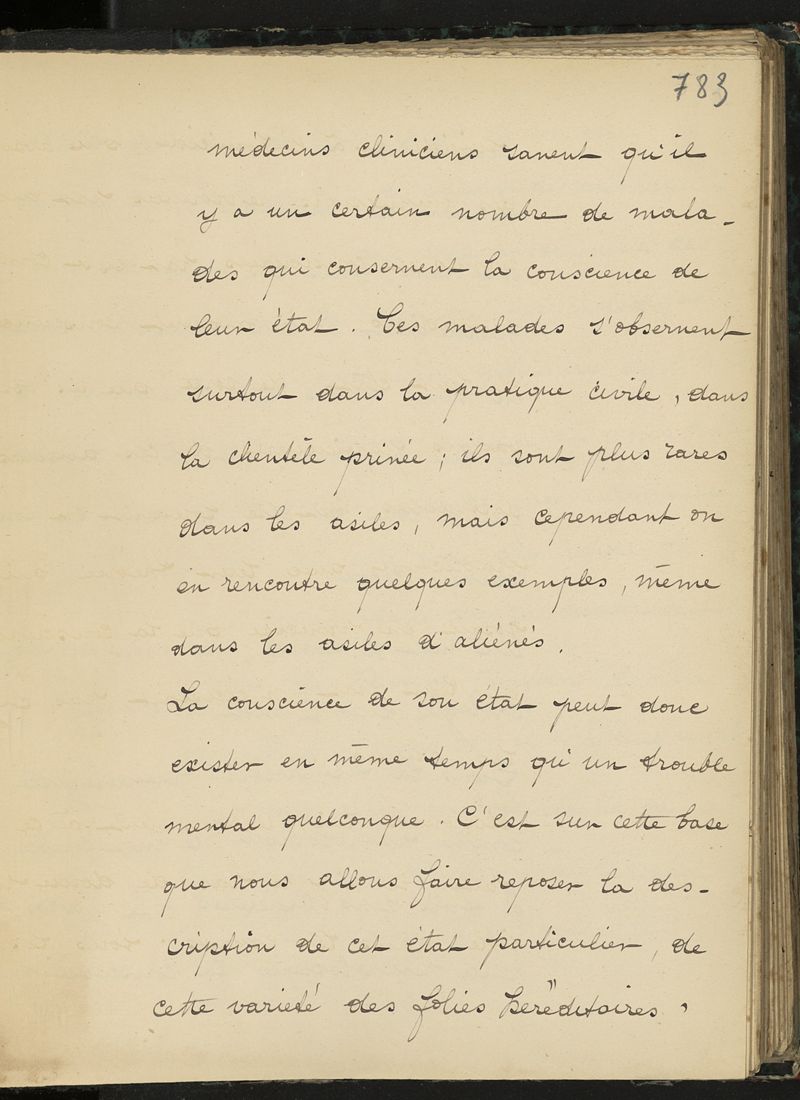 783
médecins cliniciens savent qu'il
y a un certain nombre de mala-
des qui conservent la conscience de
leur état. Ces malades s'observent
surtout dans la pratique civile, dans
la clientèle privée ; ils sont plus rares
dans les asiles, mais cependant on
en rencontre quelques exemples, même
dans les asiles d'aliénés.
La conscience de son état peut donc
exister en même temps qu'un trouble
mental quelconque. C'est sur cette base
que nous allons faire reposer la des-
cription de cet état particulier, de
cette variété des folies héréditaires,